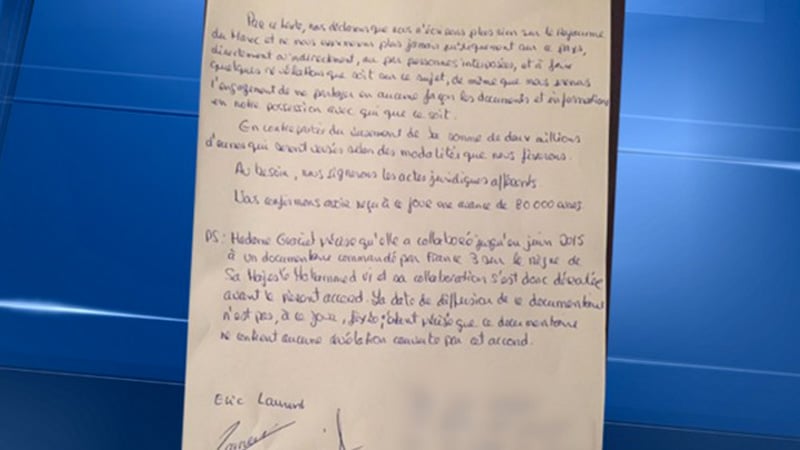 Par ce texte, nous déclarons que nous n'écrirons plus rien sur le Royaume
du Maroc et ne nous exprimerons plus jamais publiquement sur ce pays,
directement ou indirectement, ou par personnes interposées, et à faire
quelques révélations que soit sur ce sujet, de même que nous prenons
l'engagement de ne partager en aucune façon les documents et informations
en notre possession avec qui que ce soit.
En contrepartie du versement de la somme de deux millions
d'euros qui seront versés selon des modalités que nous fixerons.
Au besoin, nous signerons les actes juridiques afférents.
Nous confirmons avoir reçu à ce jour une avance de 80 000 euros.
PS: Madame Graciet précise qu'elle a collaboré jusqu'en juin 2015
à un documentaire commandé par France 3 sur le règne de
Sa Majesté Mohammed VI et sa collaboration s'est donc déroulée
avant le présent accord. La date de diffusion de ce documentaire
n'est pas, à ce jour, fixée; étant précisé que ce documentaire
ne contient aucune révélation couverte par cet accord.
Eric Laurent